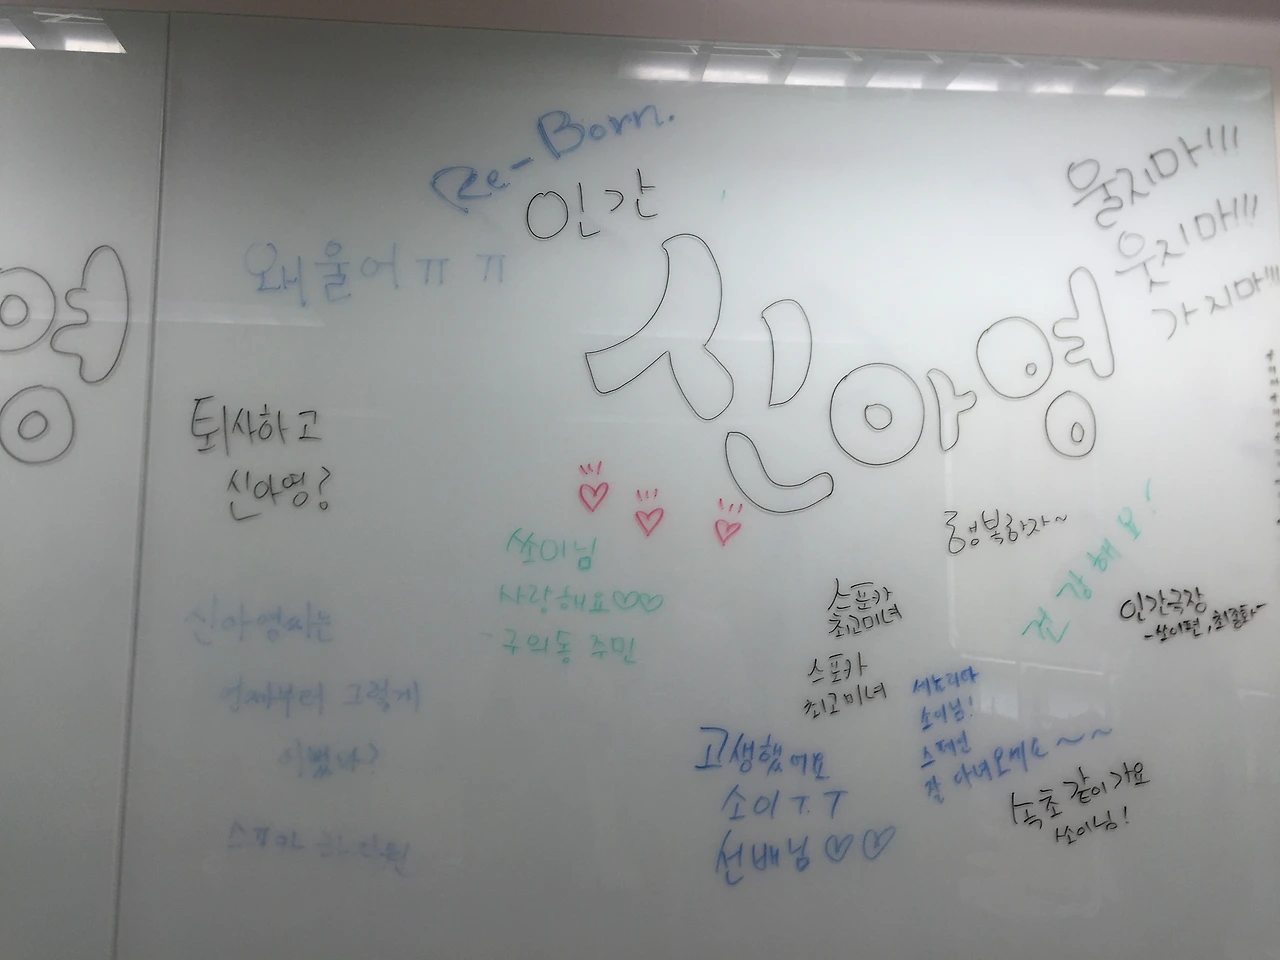 Re-Born.
인간
신아영
왜 울어 ㅠ ㅠ
울지마!!!
웃지마!!!
가지마!!!
영
퇴사하고
신아영?
쏘이님
사랑해요♡♡
- 구의동 주민
신아영씨는
언제부터 그렇게
이뻤나?
행복하자~
건강해요!
인간극장
- 쏘이편, 최종화-
스포카
최고미녀
스포카
최고미녀
고생했어요
소이ㅜㅜ
선배님♡♡
소이님!
스페인
잘 다녀오세요~~~
속초 같이 가요
쏘이님!